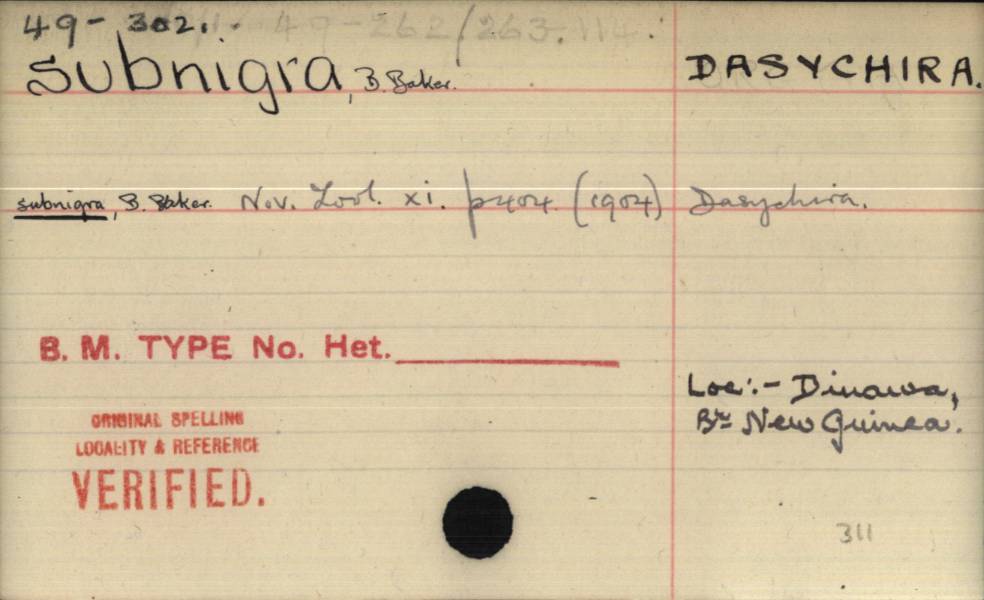 49-302. 49-262/263.114.
subnigra, B. Baker. DASYCHIRA.
subnigra, B. Baker. Nov. Zool. xi. p404. (1904) Dasychira.
B. M. TYPE No. Het.
Loc:- Dinawa,
Br. New Guinea.
ORIGINAL SPELLING
LOCALITY & REFERENCE
VERIFIED.
311